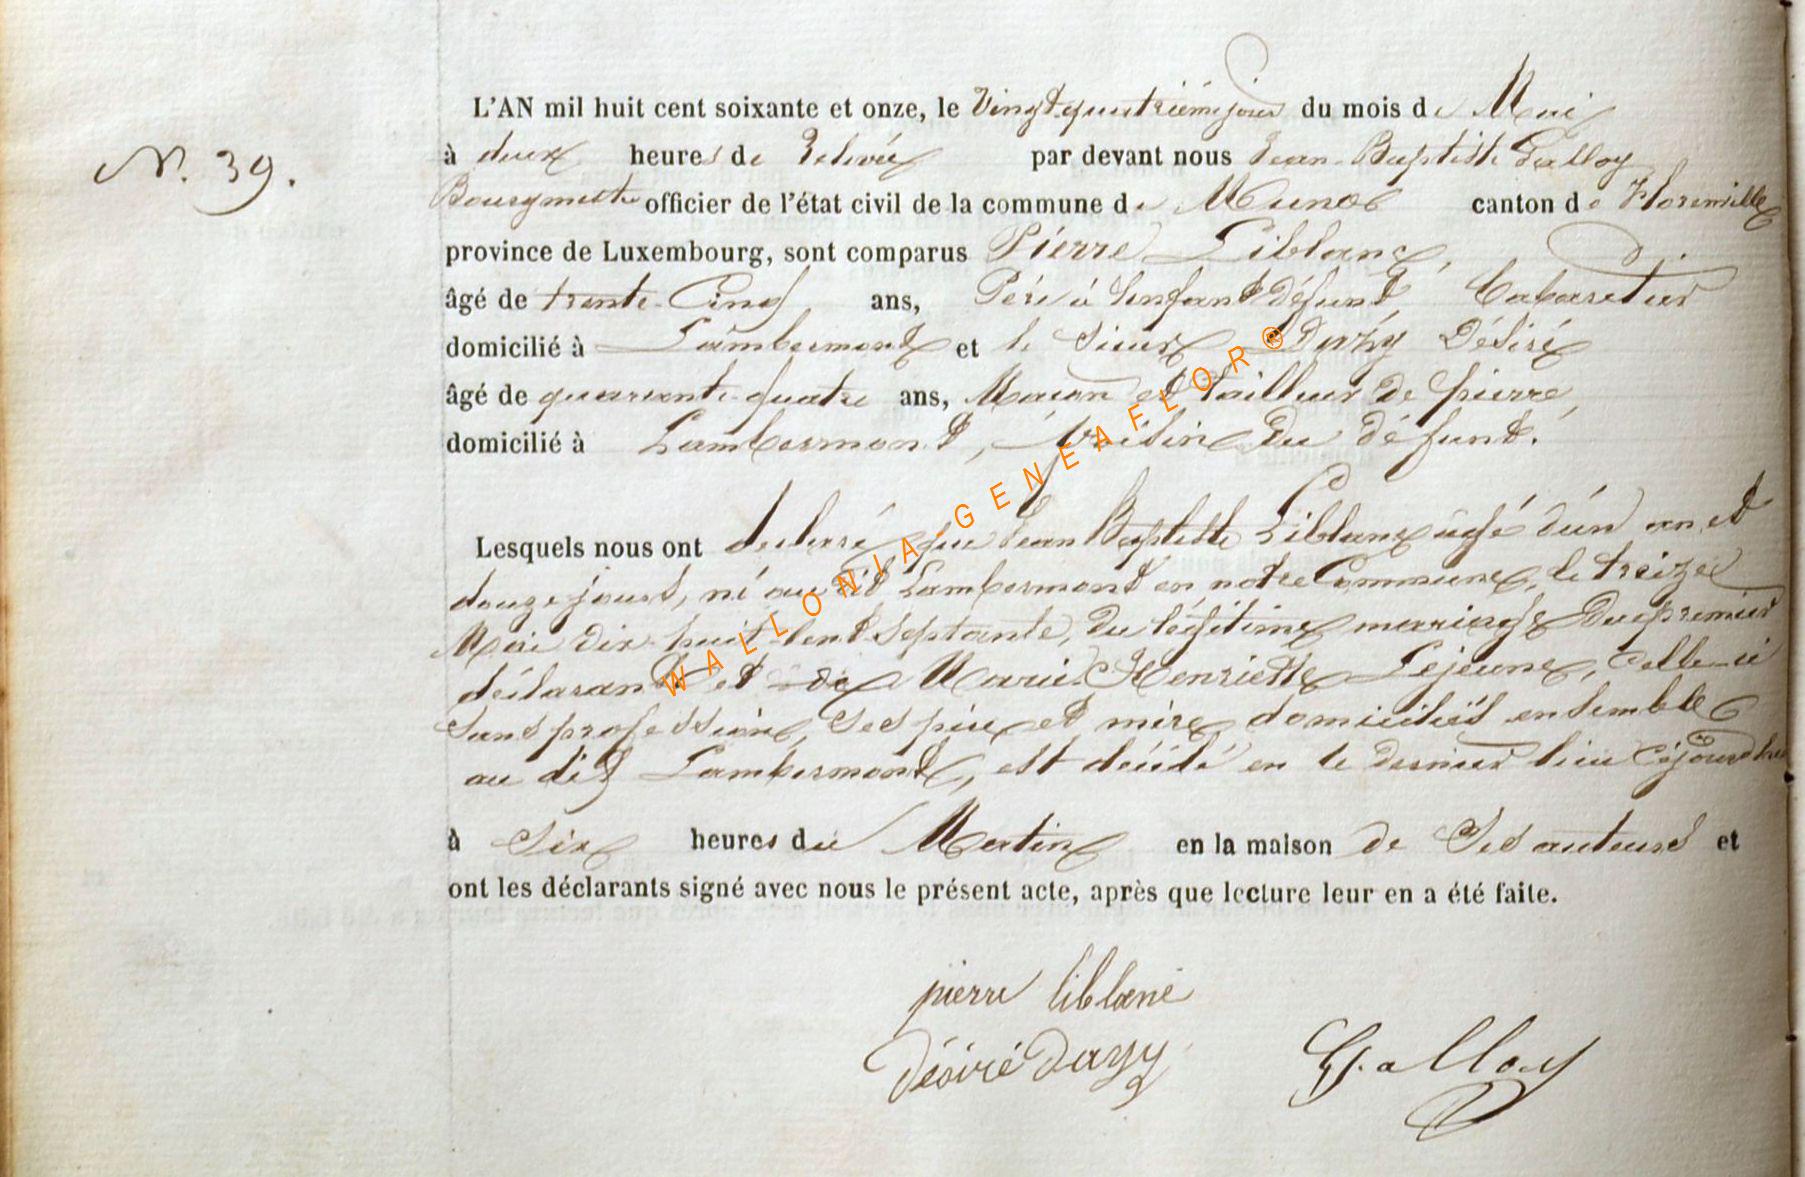 N. 39.
L'AN mil huit cent soixante et onze, le Vingt quatrième jour du mois de Mai
à deux heures de Relevée par devant nous Jean-Baptiste Galloy
Bourgmestre officier de l'état civil de la commune de Muno canton de Florenville
province de Luxembourg, sont comparus Pierre Liblanc,
âgé de trente-Cinq ans, Père à l'enfant défunt, Cabaretier
domicilié à Lambermont et le Sieur Dazy Désiré
âgé de quarante-quatre ans, Maçon et tailleur de pierre,
domicilié à Lambermont, voisin du défunt.
Lesquels nous ont declaré que Jean Baptiste Liblanc âgé d'un an et
douze jours, né au dit Lambermont en notre Commune, le treize
Mai dix-huit-Cent Septante, du légitime mariage du premier
déclarant et de Marie Henriette Lejeune, Celle-ci
Sans profession, Ses père et mère domiciliés ensemble
au dit Lambermont, est décédé en le dernier lieu
à Six heures du Matin en la maison de Ses auteurs et
ont les déclarants signé avec nous le présent acte, après que lecture leur en a été faite.
pierre liblanc
Désiré Dazy
Galloy
WALLONIA GENEAFLOR®